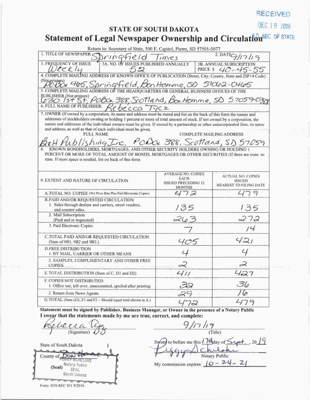 RECEIVED
DEC 18 2019
SEC OF STATE
STATE OF SOUTH DAKOTA
Statement of Legal Newspaper Ownership and Circulation
Return to: Secretary of State, 500 E. Capitol, Pierre, SD 57501-5077
1. TITLE OF NEWSPAPER
Springfield Times
2. DATE
9/17/19
3. FREQUENCY OF ISSUE
Weekly
3A. NO. OF ISSUES PUBLISHED ANNUALLY
52
3B. ANNUAL SUBSCRIPTION PRICE $
4. COMPLETE MAILING ADDRESS OF KNOWN OFFICE OF PUBLICATION (Street, City, County, State and ZIP+4 Code) (Not printer)
PoBox 465 Springfield, Bon Homme, SD 57062-0465
5. COMPLETE MAILING ADDRESS OF THE HEADQUARTERS OR GENERAL BUSINESS OFFICES OF THE PUBLISHER (Not printer)
Scotland, Bon Homme, SD
6. FULL NAME OF PUBLISHER
Rebecca Tycz
7. OWNER (If owned by a corporation, its name and address must be stated and also the names and addresses of stockholders owning or holding 1 percent or more of total amount of stock. If not owned by a corporation, the names and addresses of the individual owners must be given. If owned by a partnership or other unincorporated firm, its name and address, as well as that of each individual must be given.
FULL NAME
COMPLETE MAILING ADDRESS
B&H Publishing, Inc. PoBox 388, Scotland, SD 57059
8. KNOWN BONDHOLDERS, MORTGAGES, AND OTHER SECURITY HOLDERS OWNING OR HOLDING 1 PERCENT OR MORE OF TOTAL AMOUNT OF BONDS, MORTGAGES OR OTHER SECURITIES
9. EXTENT AND NATURE OF CIRCULATION
AVERAGE NO. COPIES EACH ISSUED PRECEDING 12 MONTHS
ACTUAL NO. COPIES ISSUED NEAREST TO FILING DATE
A. TOTAL NO. COPIES
472
479
B. PAID AND/OR REQUESTED CIRCULATION
1. Sales through dealers and carriers, street vendors, and counter sales.
135
135
2. Mail Subscription (Paid and or requested)
263
272
3. Paid Electronic Copies
7
14
C. TOTAL PAID AND/OR REQUESTED CIRCULATION
(Sum of 9B1, 9B2 and 9B3.)
405
421
D. FREE DISTRIBUTION
1. BY MAIL, CARRIER OR OTHER MEANS
4
4
2. SAMPLES, COMPLIMENTARY AND OTHER FREE COPIES
2
2
E. TOTAL DISTRIBUTION (Sum of C, D1 and D2)
411
427
F. COPIES NOT DISTRIBUTED
1. Office use, left over, unaccounted, spoiled after printing
32
36
2. Return from News Agents
29
16
G. TOTAL (Sum of E, F1 and F2 - Should equal total shown in A.)
472
479
Statement must be signed by Publisher, Business Manager, or Owner in the presence of a Notary Public
I swear that the statements made by me are true, correct, and complete:
Rebecca Tycz
9/17/19
(Signature)
(Title)
State of South Dakota
County of Bon Homme
(Seal)
Notary Public
SEAL
South Dakota
Sworn to before me this 17 day of Sept. 2019
Notary Public
My commission expires: 10-24-21